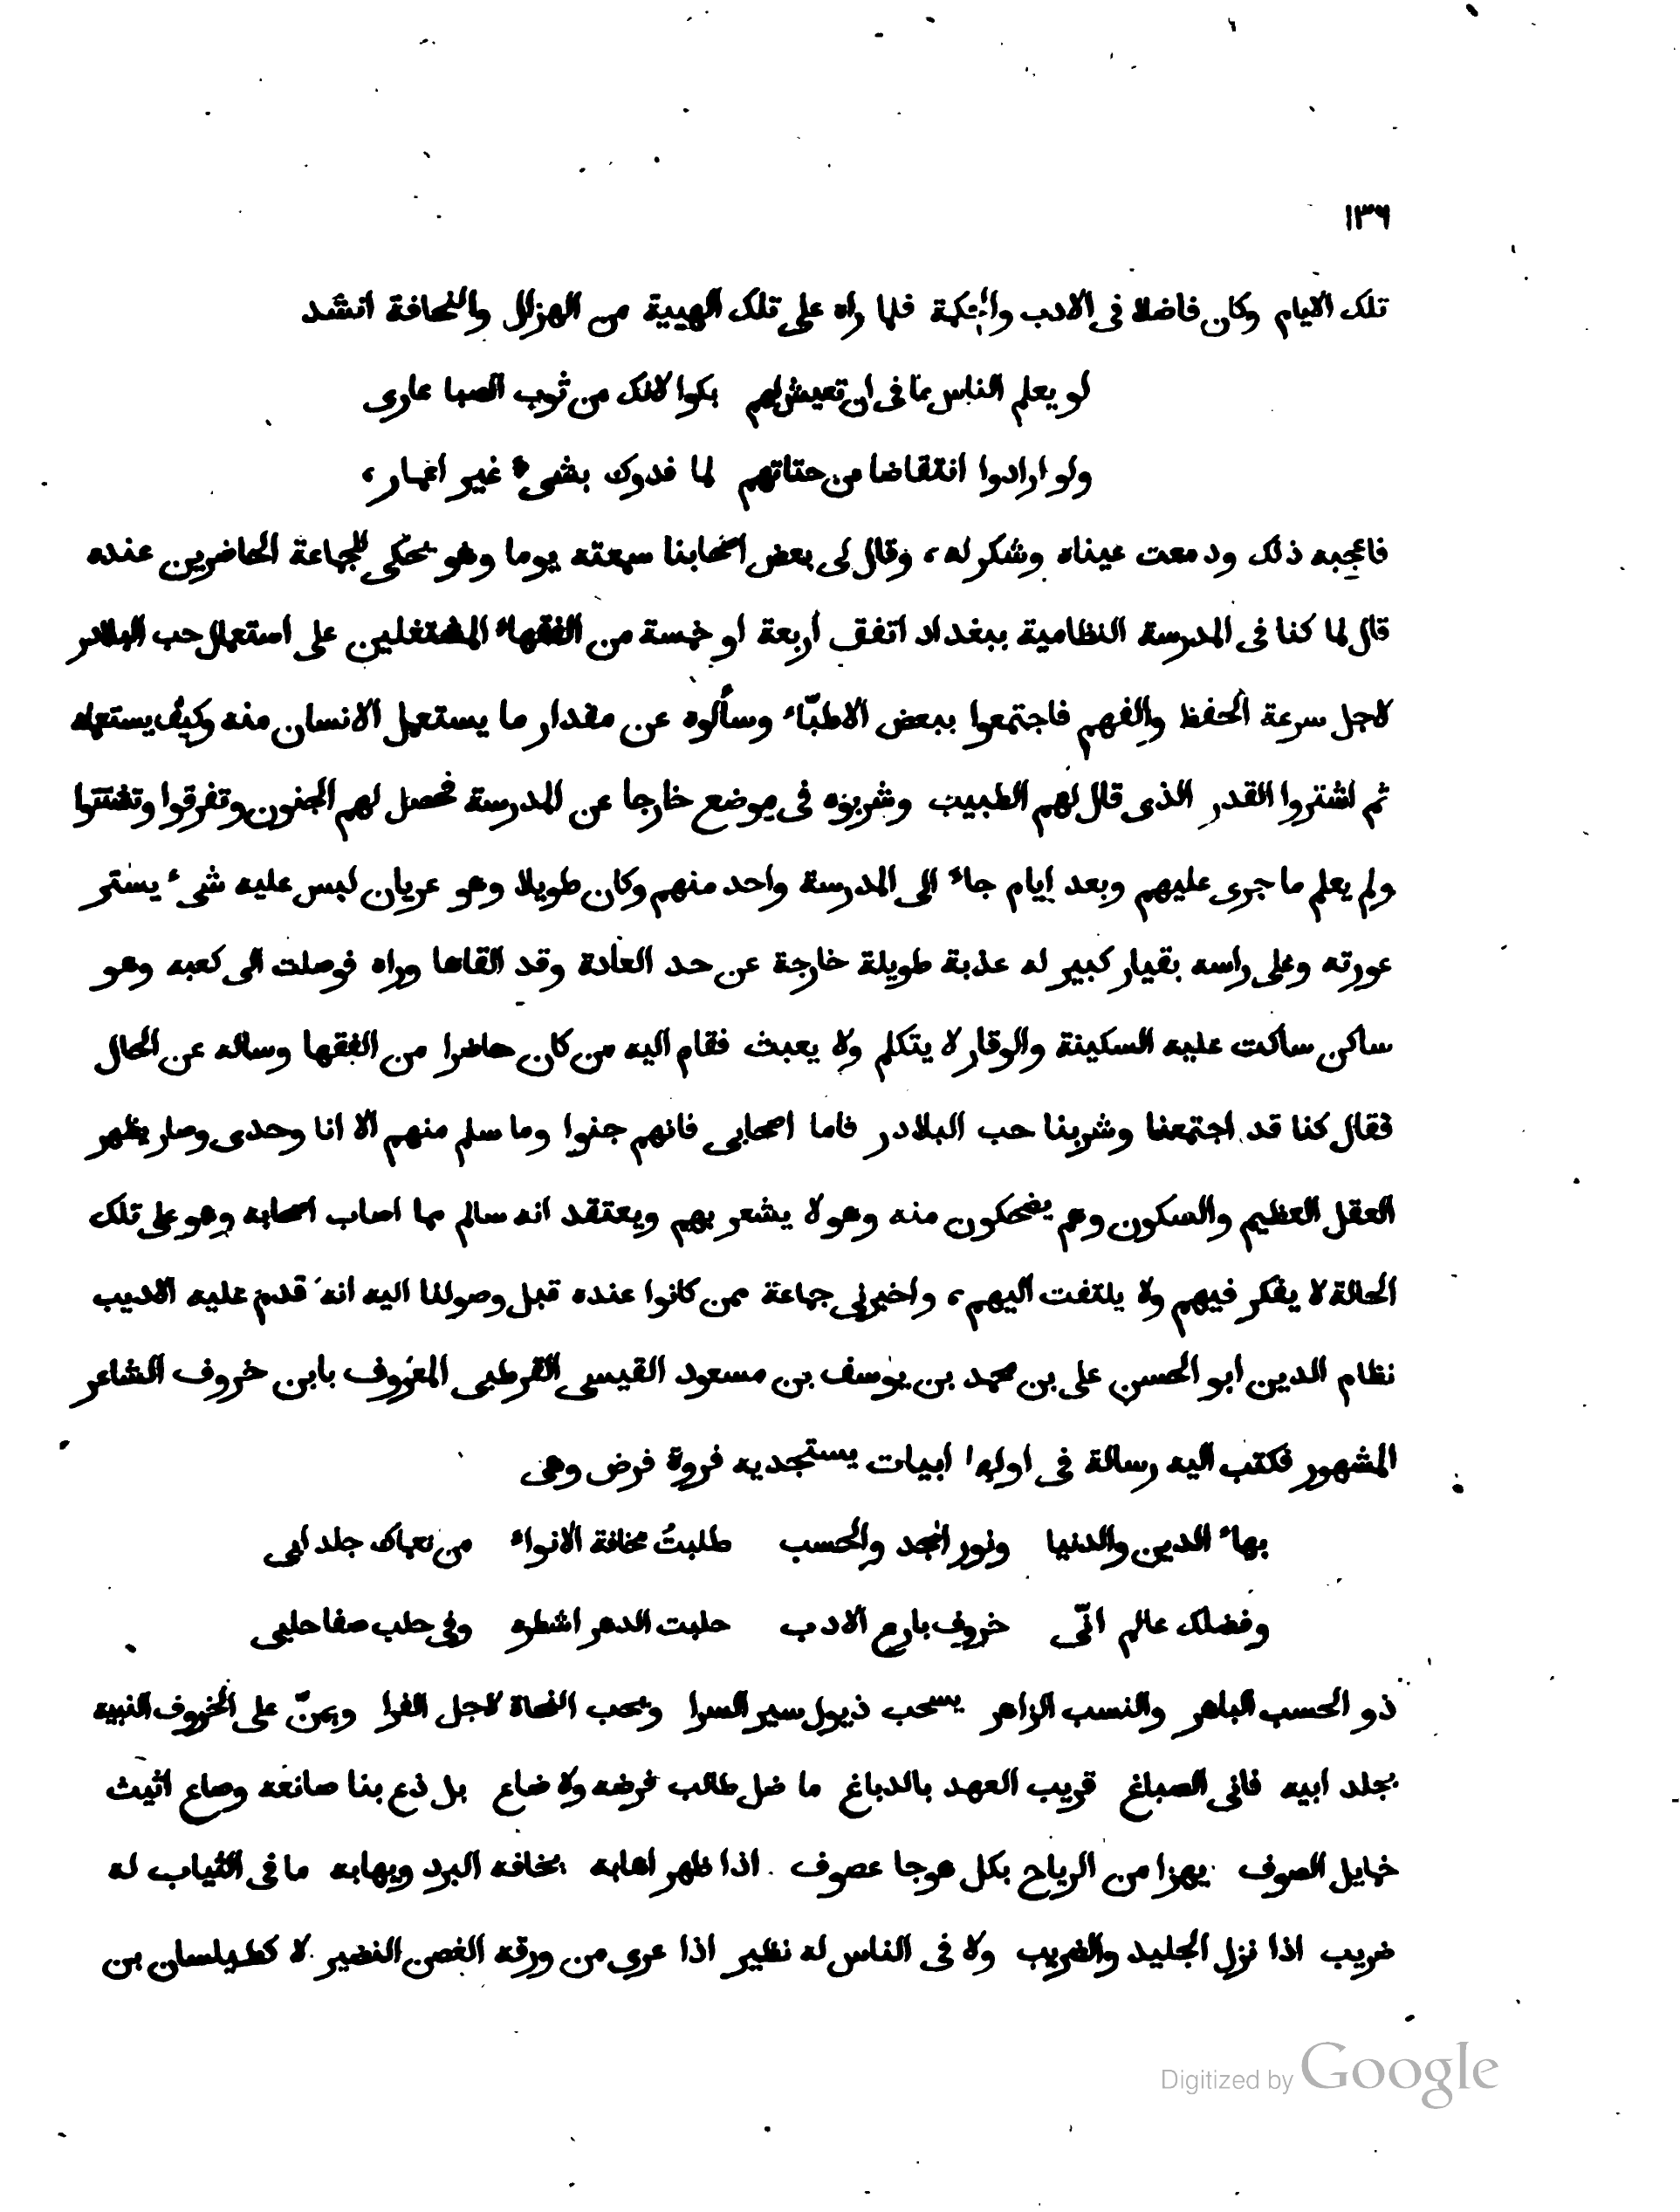 ١٣٦
تلك الايام وكان فاضلا فى الادب والحكمة فلما راه على تلك الهيية من الهزال والنحافة انشد
لو يعلم الناس ما فى ان تعيش لهم بكوا لانك من ثوب الصبا عارى
ولو ارادوا انتقاضا من حتاتهم لما فدوك بشىء غير اعمار،
فاعجبه ذلك ودمعت عيناه وشكر له، وقال لى بعض اصحابنا سمعته يوما وهو يحكى للجماعة الحاضرين عنده
قال لما كنا فى المدرسة النظامية ببغداد اتفق أربعة او خمسة من الفقهاء المشتغلين على استعمال حب البلادر
لاجل سرعة الحفظ والفهم فاجتمعوا ببعض الاطبّاء وسألوه عن مقدار ما يستعمل الانسان منه وكيف يستعمله
ثم اشتروا القدر الذى قال لهم الطبيب وشربوه فى موضع خارجا عن المدرسة فحصل لهم الجنون وتفرقوا وتشتتوا
ولم يعلم ما جرى عليهم وبعد ايام جاء الى المدرسة واحد منهم وكان طويلا وهو عريان ليس عليه شىء يستر
عورته وعلى راسه بقيار كبير له عذبة طويلة خارجة عن حد العادة وقد القاها وراه فوصلت الى كعبه وهو
ساكن ساكت عليه السكينة والوقار لا يتكلم ولا يعبث فقام اليه من كان حاضرا من الفقها وساله عن الحال
فقال كنا قد اجتمعنا وشربنا حب البلادر فاما اصحابى فانهم جنوا وما سلم منهم الا انا وحدى وصار يظهر
العقل العظيم والسكون وهم يضحكون منه وهو لا يشعر بهم ويعتقد انه سالم مما اصاب اصحابه وهو على تلك
الحالة لا يفكر فيهم ولا يلتفت اليهم، واخبرنى جماعة ممن كانوا عنده قبل وصولنا اليه انه قدم عليه الاديب
نظام الدين ابو الحسن على بن محمد بن يوسف بن مسعود القيسى القرطبى المعروف بابن خروف الشاعر
المشهور فكتب اليه رسالة فى اولها ابيات يستجديه فروة فرض وهى
بهاء الدين والدنيا ونور المجد والحسب طلبتُ مخافة الانواء من نعماك جلد ابى
وفضلك عالم انّى خروف بارع الادب حلبت الدهر اشطره وفى حلب صفا حلبى
ذو الحسب الباهر والنسب الزاهر يسحب ذيول سير السرا ويحب النحاة لاجل الفرا ويمنّ على الخروف النبيه
بجلد ابيه قانى الصباغ قريب العهد بالدباغ ما ضل طالب فرضه ولا ضاع بل ذع بنا صانعه وصاع اثيث
خمايل الصوف يهزا من الرياح بكل هوجا عصوف اذا ظهر اهابه يخافه البرد ويهابه ما فى الثياب له
ضريب اذا نزل الجليد والضريب ولا فى الناس له نظير اذا عرى من ورقه الغصن النضير لا كطيلسان بن
Digitized by Google